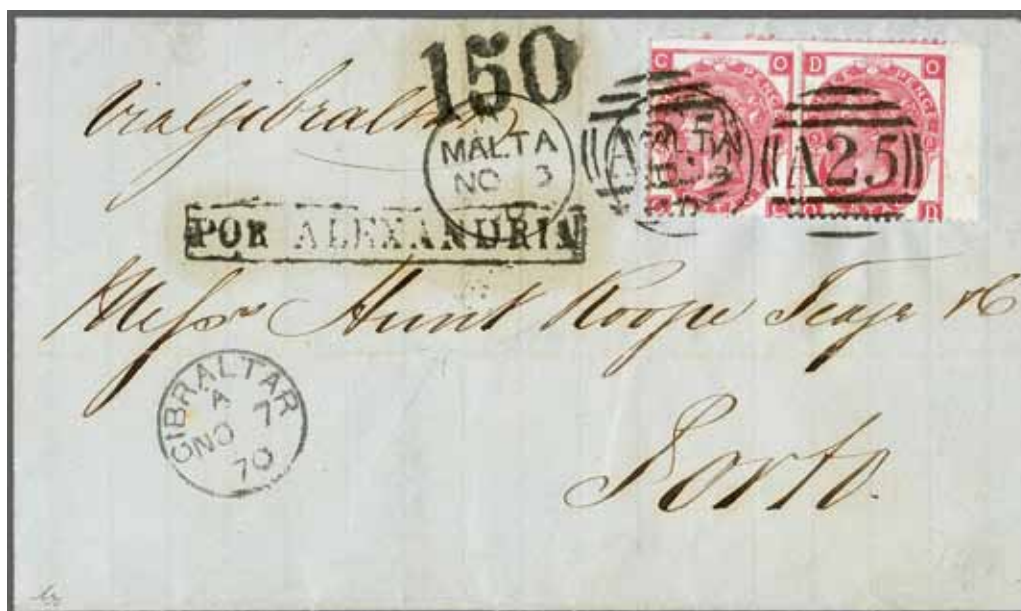 150
via Gibraltar
MALTA
NO 3
A25
MALTA
A25
G O
D O
PENCE
PENCE
POR ALEXANDRIA
Messrs Hunt Roope Teage & C
GIBRALTAR
A
NO 7
70
Porto.